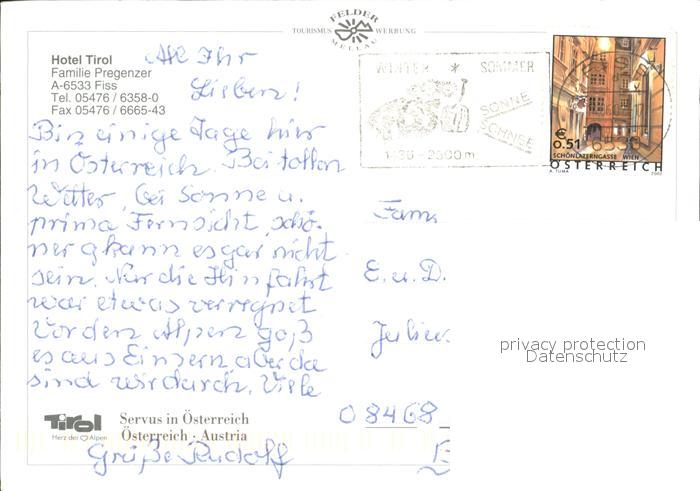 FELDER
TOURISMUS WERBUNG
MELLAU
Hotel Tirol
Familie Pregenzer
A-6533 Fiss
Tel. 05476 / 6358-0
Fax 05476 / 6665-43
Ihr
Lieben!
Bin einige Tage hier
in Österreich. Bei tollem
Wetter, bei Sonne u.
prima Fernsicht, schö-
ner kann es gar nicht
sein. Nur die Hinfahrt
war etwas verregnet
Vor den Alpen goß
es aus Eimern, aber da
sind wir durch. Viele
Grüße Rudolf
WINTER * SOMMER
SONNE
SCHNEE
1436 - 2600 m
6533
€ 0.51
SCHÖNLATERNGASSE WIEN
ÖSTERREICH
A. TUMA
2002
Fam.
E. u. D.
08468
privacy protection
Datenschutz
Tirol
Herz der Alpen
Servus in Österreich
Österreich · Austria